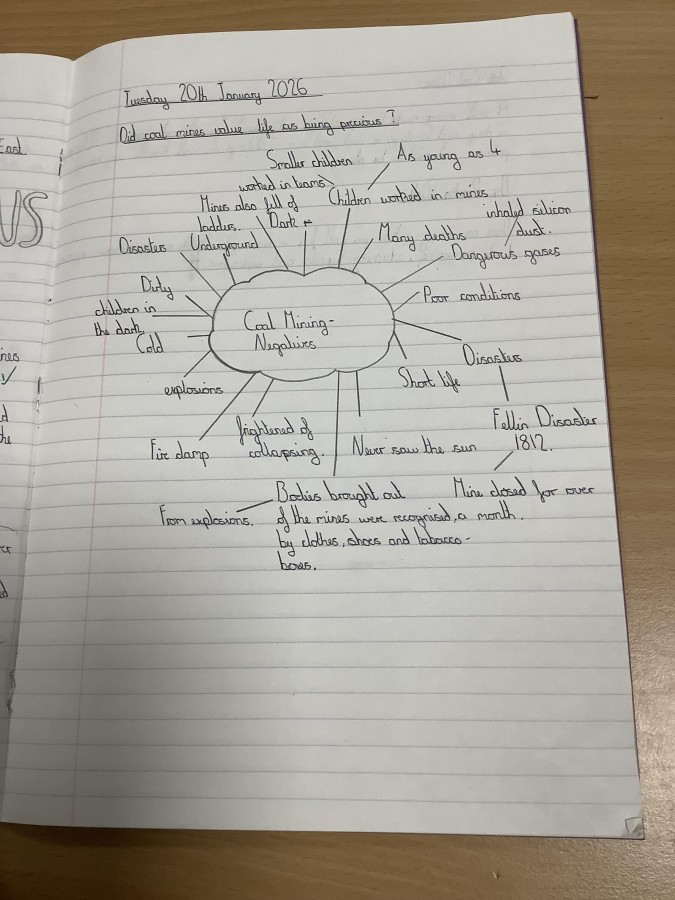 Tuesday 20th January 2026
Did coal mines value life as being precious?
Smaller children
worked in teams
As young as 4
Children worked in mines
Mines also full of
ladders.
Dark
inhaled silicon
dust.
Many deaths
Disasters
Underground
Dangerous gases
Dirty
Poor conditions
children in
the dark
Coal Mining-
Negatives
Cold
Disasters
Short life
explosions
Fellin Disaster
1812.
frightened of
collapsing.
Never saw the sun
Fire damp
Bodies brought out
of the mines were recognised
by clothes, shoes and tabacco-
boxes.
Mine closed for over
a month.
From explosions.
East
US
nes
d
the
er
d